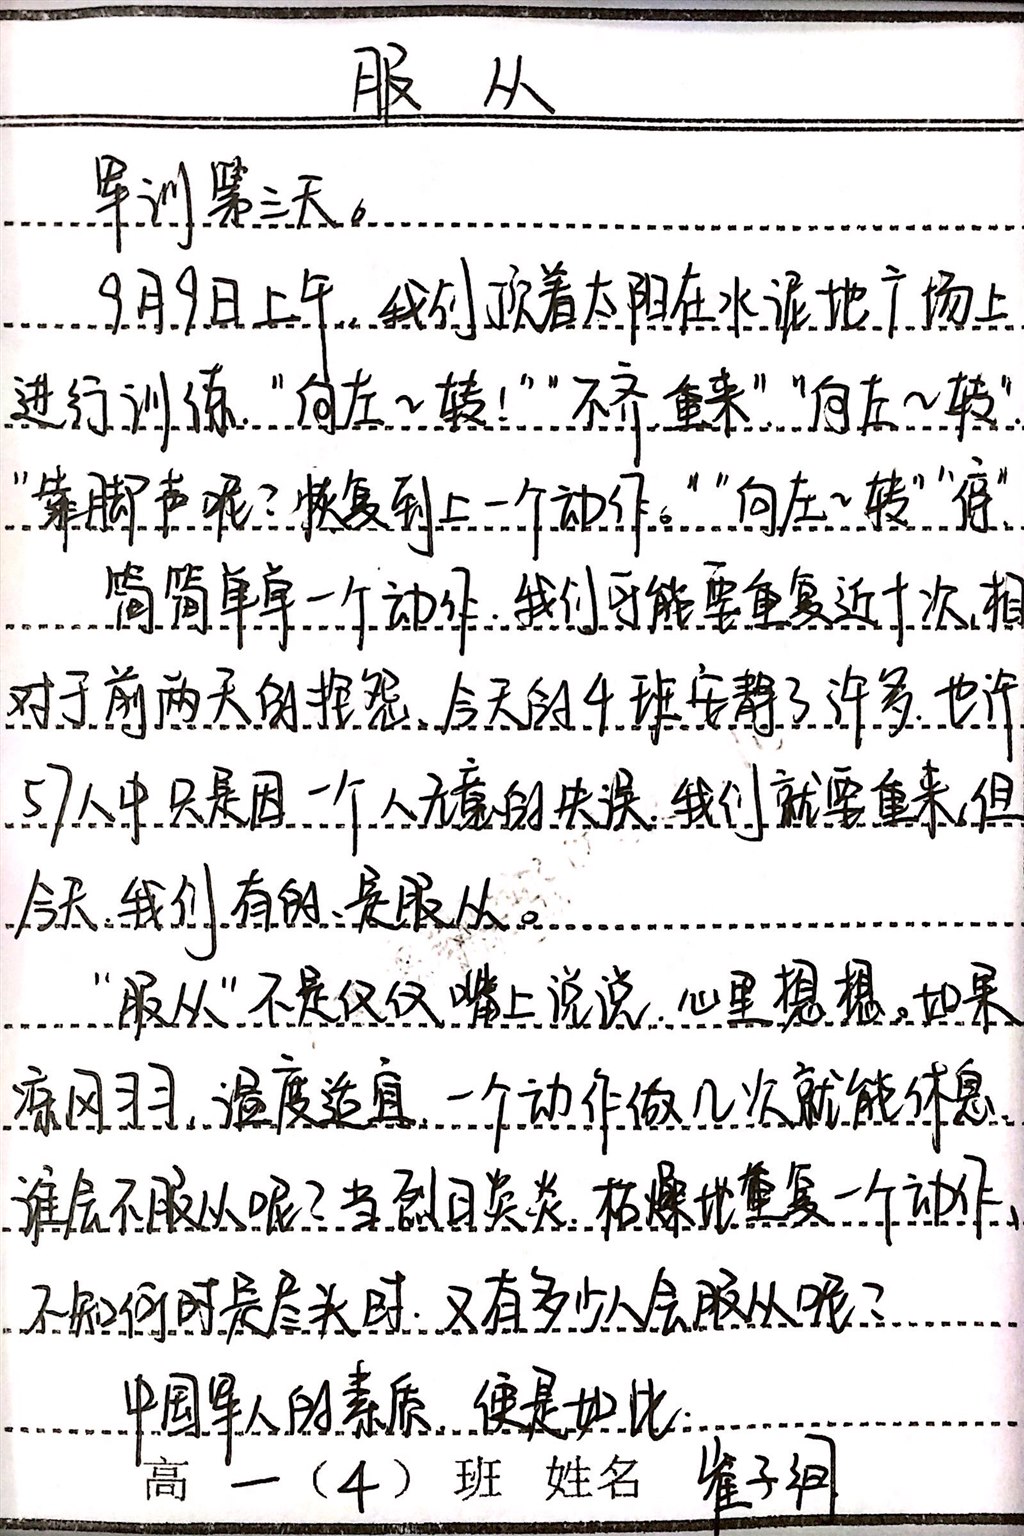 服从
军训第三天。
9月9日上午，我们顶着太阳在水泥地广场上
进行训练，"向左~转！""不齐，重来"，"向左~转"，
"靠脚声呢？恢复到上一个动作。""向左~转""停"，
简简单单一个动作，我们可能要重复近十次，相
对于前两天的抱怨，今天的4班安静了许多，也许
57人中只是因一个人无意的失误，我们就要重来，但
今天，我们有的，是服从。
"服从"不是仅仅嘴上说说，心里想想。如果
凉风习习，温度适宜，一个动作做几次就能休息，
谁会不服从呢？当烈日炎炎，枯燥地重复一个动作，
不知何时是尽头时，又有多少人会服从呢？
中国军人的素质，便是如此.
高一（4）班 姓名 崔子